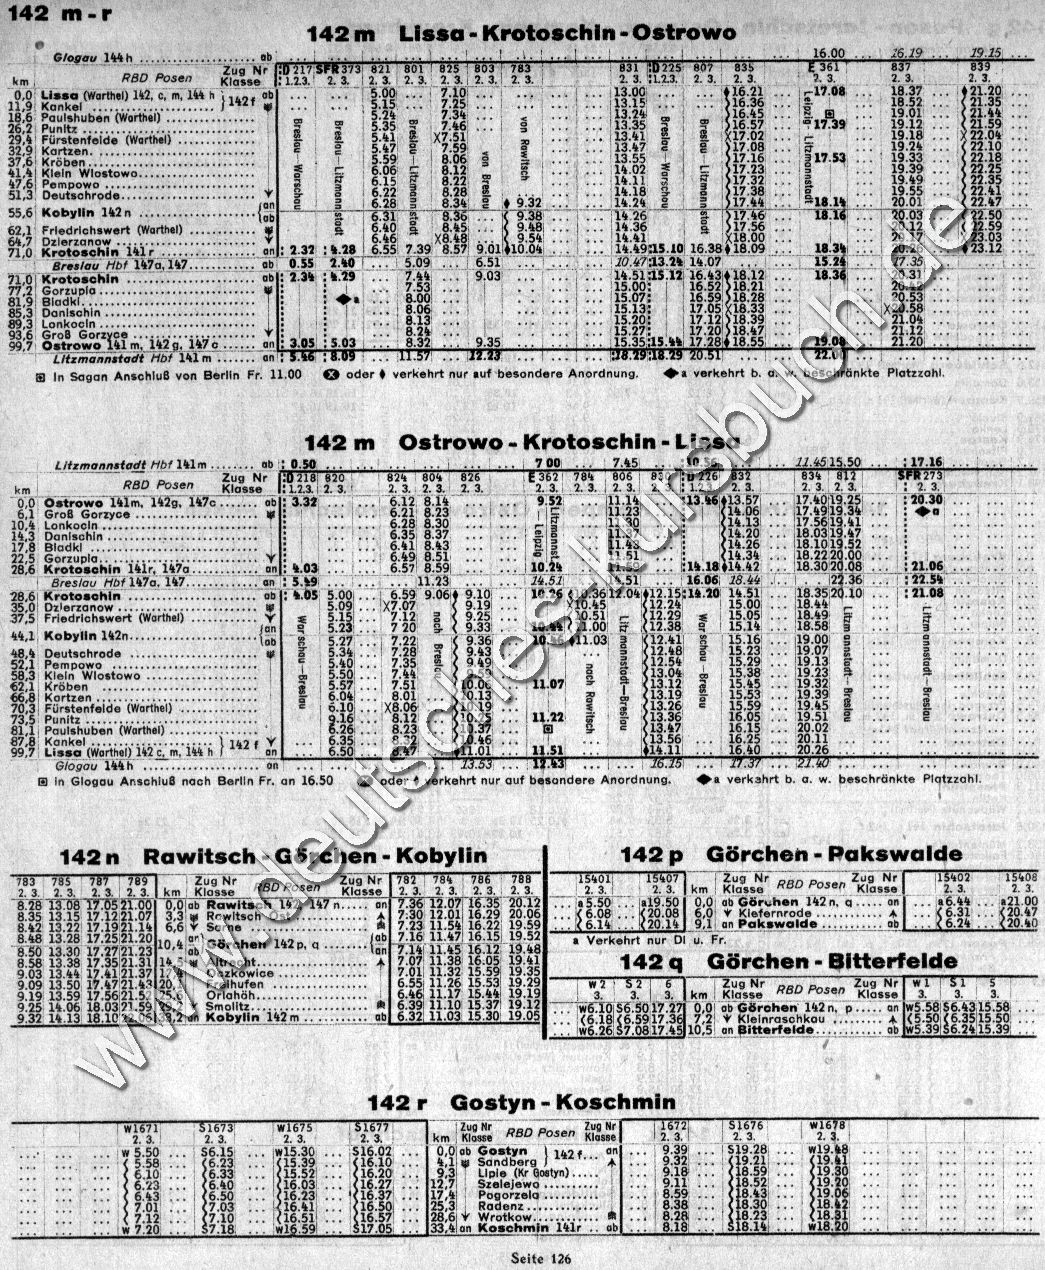 142 m - r
142 m Lissa - Krotoschin - Ostrowo
Glogau 144 h ab 16.00 16.19 19.15
km RBD Posen Zug Nr Klasse D 217 SFR 373 821 801 825 803 783 831 D 225 807 835 E 361 837 839
0,0 Lissa (Warthel) 142, c, m, 144 h ab 5.00 7.10 13.00 16.21 17.08 18.37 21.20
11,9 Kankel 142 f 5.15 7.25 13.15 16.36 18.52 21.35
18,6 Paulshuben (Warthel) 5.24 7.34 13.24 16.45 19.01 21.44
26,2 Punitz 5.35 7.46 13.35 16.57 17.39 19.12 21.59
29,4 Fürstenfelde (Warthel) 5.41 7.51 13.41 17.02 19.18 22.04
32,9 Kartzen 5.47 7.59 13.47 17.08 19.24 22.10
37,6 Kröben 5.59 8.06 13.55 17.16 17.53 19.33 22.18
41,4 Klein Wlostowo 6.06 8.12 14.02 17.23 19.39 22.25
47,6 Pempowo 6.15 8.22 14.11 17.32 19.49 22.35
51,3 Deutschrode 6.22 8.28 14.18 17.38 19.55 22.41
55,6 Kobylin 142 n an 6.28 8.34 9.32 14.24 17.44 18.14 20.01 22.47
ab 6.31 8.36 9.38 14.26 17.46 18.16 20.03 22.50
62,1 Friedrichswert (Warthel) 6.40 8.45 9.48 14.36 17.56 20.12 22.59
64,7 Dzierzanow 6.46 8.48 9.54 14.41 18.00 20.17 23.03
71,0 Krotoschin 141 r an 2.32 4.28 6.55 7.39 8.57 9.01 10.04 14.49 15.10 16.38 18.09 18.34 20.26 23.12
Breslau Hbf 147a, 147 ab 0.55 2.40 5.09 6.51 10.47 13.24 14.07 15.24 17.35
71,0 Krotoschin ab 2.34 4.29 7.44 9.03 14.51 15.12 16.43 18.12 18.36 20.31
77,2 Gorzupia 7.53 15.00 16.52 18.21
81,9 Bladki a 8.00 15.07 16.59 18.28 20.53
85,3 Danischin 8.06 15.13 17.05 18.33 20.58
89,3 Lonkocin 8.13 15.20 17.12 18.39 21.04
93,6 Groß Gorzyce 8.24 15.27 17.20 18.47 21.12
99,7 Ostrowo 141 m, 142 g, 147 c an 3.05 5.03 8.32 9.35 15.35 15.44 17.28 18.55 19.08 21.20
Litzmannstadt Hbf 141 m an 5.46 8.09 11.57 12.23 18.29 18.29 20.51
In Sagan Anschluß von Berlin Fr. 11.00 oder verkehrt nur auf besondere Anordnung. a verkehrt b. a. w. beschränkte Platzzahl.
142 m Ostrowo - Krotoschin - Lissa
Litzmannstadt Hbf 141 m ab 0.50 7 00 7.45 11.45 15.50 17.16
km RBD Posen Zug Nr Klasse D 218 820 824 804 826 E 362 784 806 D 226 832 834 812 SFR 273
0,0 Ostrowo 141 m, 142 g, 147 c ab 3.32 6.12 8.14 9.52 11.14 13.46 13.57 17.40 19.25 20.30
6,1 Groß Gorzyce 6.21 8.23 11.23 14.06 17.49 19.34 a
10,4 Lonkocin 6.28 8.30 11.30 14.13 17.56 19.41
14,3 Danischin 6.35 8.37 14.20 18.03 19.47
17,8 Bladki 6.41 8.43 14.26 18.10 19.52
22,5 Gorzupia 6.49 8.51 11.51 14.34 18.22 20.00
28,6 Krotoschin 141 r, 147 a an 4.03 6.57 8.59 10.24 14.18 14.42 18.30 20.08 21.06
Breslau Hbf 147 a, 147 an 5.49 11.23 14.51 14.51 16.06 18.44 22.36 22.54
28,6 Krotoschin ab 4.05 5.00 6.59 9.06 9.10 10.26 10.36 12.04 12.15 14.20 14.51 18.35 20.10 21.08
35,0 Dzierzanow 5.09 7.07 9.19 10.45 12.24 15.00 18.44
37,5 Friedrichswert (Warthel) 5.15 7.12 9.25 10.51 12.29 15.05 18.49
44,1 Kobylin 142 n an 5.23 7.20 9.33 10.44 11.00 12.38 15.14 18.58
ab 5.27 7.22 9.36 10.46 11.03 12.41 15.16 19.00
48,4 Deutschrode 5.34 7.28 9.43 12.48 15.23 19.07
52,1 Pempowo 5.40 7.35 9.49 12.54 15.29 19.13
58,3 Klein Wlostowo 5.50 7.44 13.04 15.38 19.23
62,1 Kröben 5.57 7.51 10.06 11.07 13.12 15.45 19.32
66,8 Kartzen 6.04 8.01 10.13 13.19 15.53 19.39
70,3 Fürstenfelde (Warthel) 6.10 8.06 10.19 13.26 15.59 19.45
73,5 Punitz 9.16 8.12 10.25 11.22 13.36 16.05 19.51
81,1 Paulshuben (Warthel) 6.26 8.23 10.37 13.47 16.15 20.02
87,8 Kankel 142 f 6.35 10.46 13.56 16.25 20.11
99,7 Lissa (Warthel) 142 c, m, 144 h an 6.50 8.47 11.01 11.51 14.11 16.40 20.26
Glogau 144 h an 13.53 12.43 16.15 17.37 21.40
in Glogau Anschluß nach Berlin Fr. an 16.50 oder verkehrt nur auf besondere Anordnung. a verkahrt b. a. w. beschränkte Platzzahl.
142 n Rawitsch - Görchen - Kobylin
783 785 787 789 km Zug Nr Klasse RBD Posen Zug Nr Klasse 782 784 786 788
8.28 13.08 17.05 21.00 0,0 ab Rawitsch 142, 147 n an 7.36 12.07 16.35 20.12
8.35 13.15 17.12 21.07 3,3 Rawitsch Ost 7.30 12.01 16.29 20.06
8.42 13.22 17.19 21.14 6,6 7.23 11.54 16.22 19.59
8.48 13.28 17.25 21.20 10,4 an Görchen 142 p, q ab 7.16 11.47 16.15 19.52
8.50 13.30 17.27 21.23 ab an 7.14 11.45 16.12 19.48
8.58 13.38 17.35 21.31 7.07 11.38 16.05 19.41
9.03 13.44 17.41 21.37 7.01 11.32 15.59 19.35
9.09 13.50 17.47 21.43 Freihufen 6.55 11.26 15.53 19.29
9.19 13.59 17.56 Orlahöh 6.46 11.17 15.44 19.19
9.25 14.06 18.03 21.59 Smolitz 6.39 11.10 15.37 19.12
9.32 14.13 18.10 33,2 an Kobylin 142 m ab 6.32 11.03 15.30 19.05
142 p Görchen - Pakswalde
15401 15407 km Zug Nr Klasse RBD Posen Zug Nr Klasse 15402 15408
a5.50 a19.50 0,0 ab Görchen 142 n, q an a6.44 a21.00
6.08 20.08 6,0 Kiefernrode 6.31 20.47
6.14 20.14 9,1 an Pakswalde ab 6.24 20.40
a Verkehrt nur Di u. Fr.
142 q Görchen - Bitterfelde
W 2 S 2 6 km Zug Nr Klasse RBD Posen Zug Nr Klasse W 1 S 1 5
W6.10 S6.50 17.27 0,0 ab Görchen 142 n, p an W5.58 S6.43 15.58
6.18 6.59 17.36 7,2 Kleinraschkau 5.50 6.35 15.50
W6.26 S7.08 17.45 10,5 an Bitterfelde ab W5.39 S6.24 15.39
142 r Gostyn - Koschmin
W1671 S1673 W1675 S1677 km Zug Nr Klasse RBD Posen Zug Nr Klasse 1672 S1676 W1678
W 5.50 S6.15 W15.30 S16.02 0,0 ab Gostyn 142 f an 9.39 S19.28 W19.48
5.58 6.23 15.39 16.10 4,1 Sandberg 9.32 19.21 19.41
6.10 6.33 15.52 16.20 9,3 Lipie (Kr Gostyn) 9.18 18.59 19.30
6.23 6.40 16.03 16.27 12,7 Szelejewo 9.11 18.52 19.20
6.43 6.50 16.23 16.37 17,4 Pogorzela 8.59 18.43 19.06
7.01 7.03 16.41 16.50 25,3 Radenz 8.38 18.30 18.42
7.12 7.10 16.51 16.57 28,6 Wrotkow 8.28 18.23 18.31
W 7.20 S7.18 W16.59 S17.05 33,4 an Koschmin 141r ab 8.18 S18.14 W18.20
Seite 126
www.deutsches-kursbuch.de